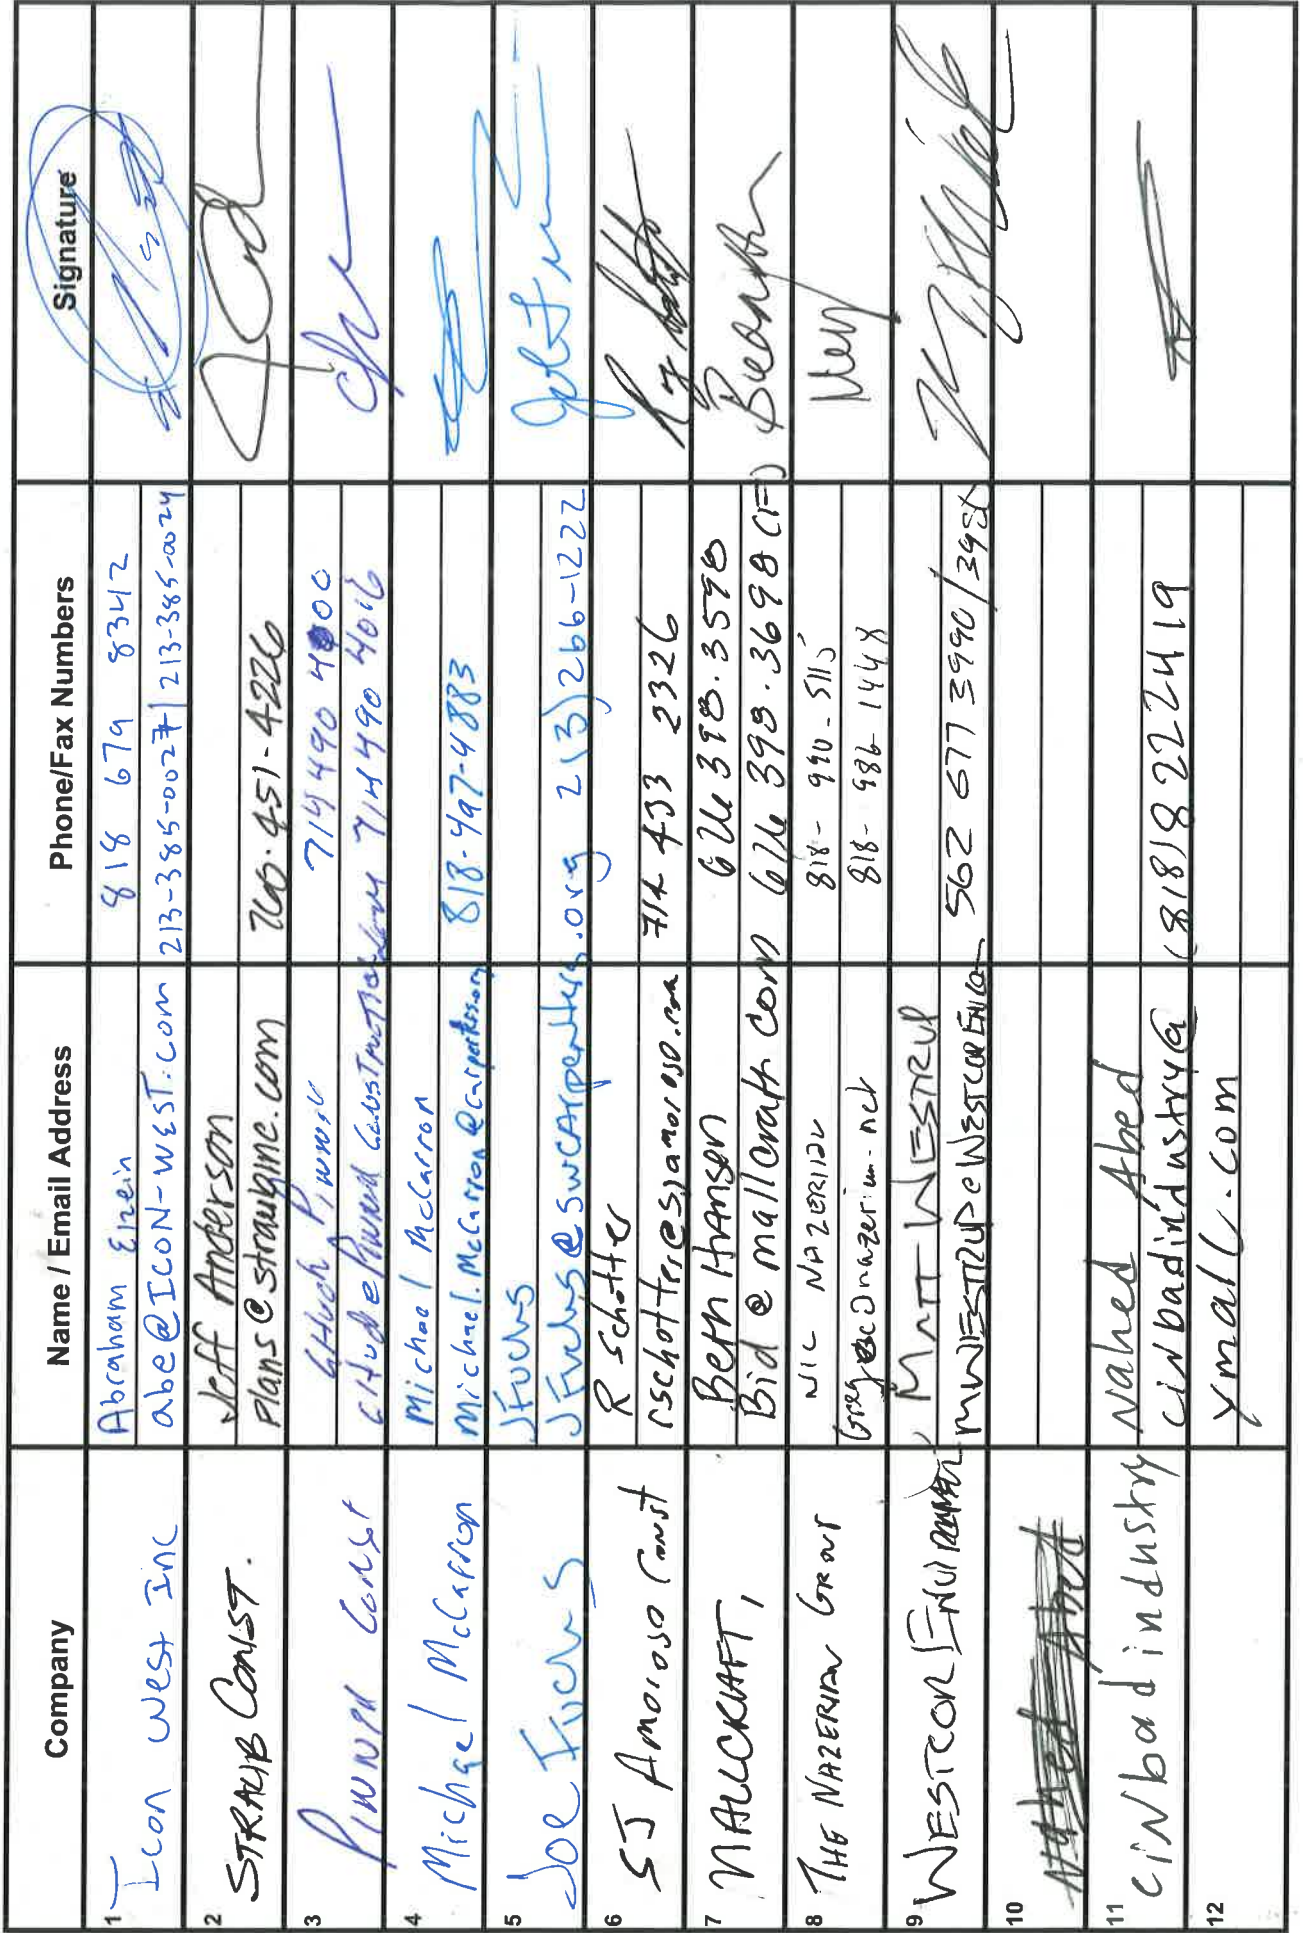 Company Name / Email Address Phone/Fax Numbers Signature
1 Icon West Inc Abraham Elzein 818 679 8342
abe@ICON-WEST.com 213-385-0027 / 213-385-0024
2 STRAUB CONST. Jeff Anderson
Plans@straubinc.com 760.451-4226
3 PINNER CONST CHUCK PINNER 714 490 4000
714 490 4016
4 Michael McCarron Michael McCarron
Michael.McCarron@carpenters.org 818-497-4883
5 Joe Fuchs JFuchs
JFuchs@swcarpenters.org 213) 266-1222
6 SJ Amoroso Const R Schotter
rschotter@sjamoroso.com 714 433 2326
7 MALLCRAFT, Beth Hansen 626 398.3598
Bid @ mallcraft.com 626 398.3698 (F)
8 THE NAZERIAN GROUP NIC NAZERIAN 818- 990-5115
818- 986-1448
9 WESTCOR ENVIRONMENTAL MATT WESTRUP
562 677 3990/
10
11 cinbadindustry Nahed Abed
cinbadindustry@ (818)8222419
12 ymail.com